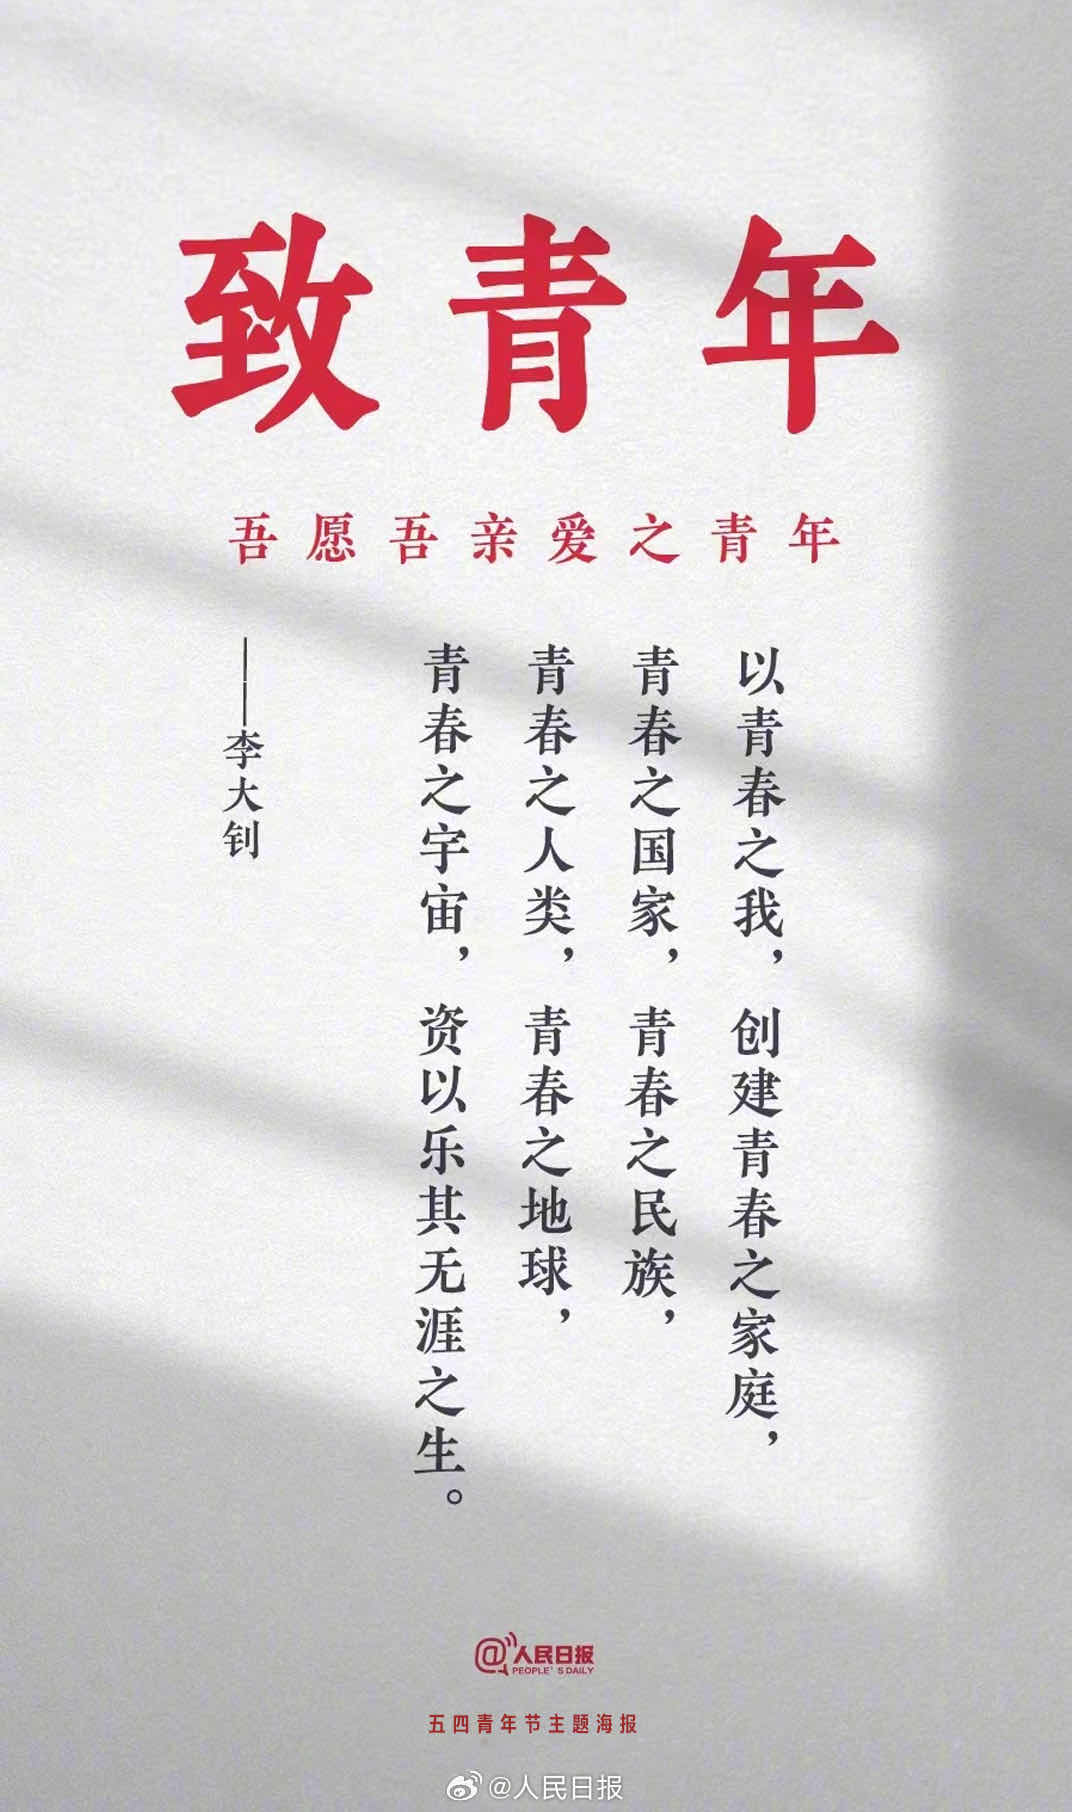 致青年
吾愿吾亲爱之青年
以青春之我，创建青春之家庭，
青春之国家，青春之民族，
青春之人类，青春之地球，
青春之宇宙，资以乐其无涯之生。
——李大钊
@人民日报
PEOPLE'S DAILY
五四青年节主题海报
@人民日报